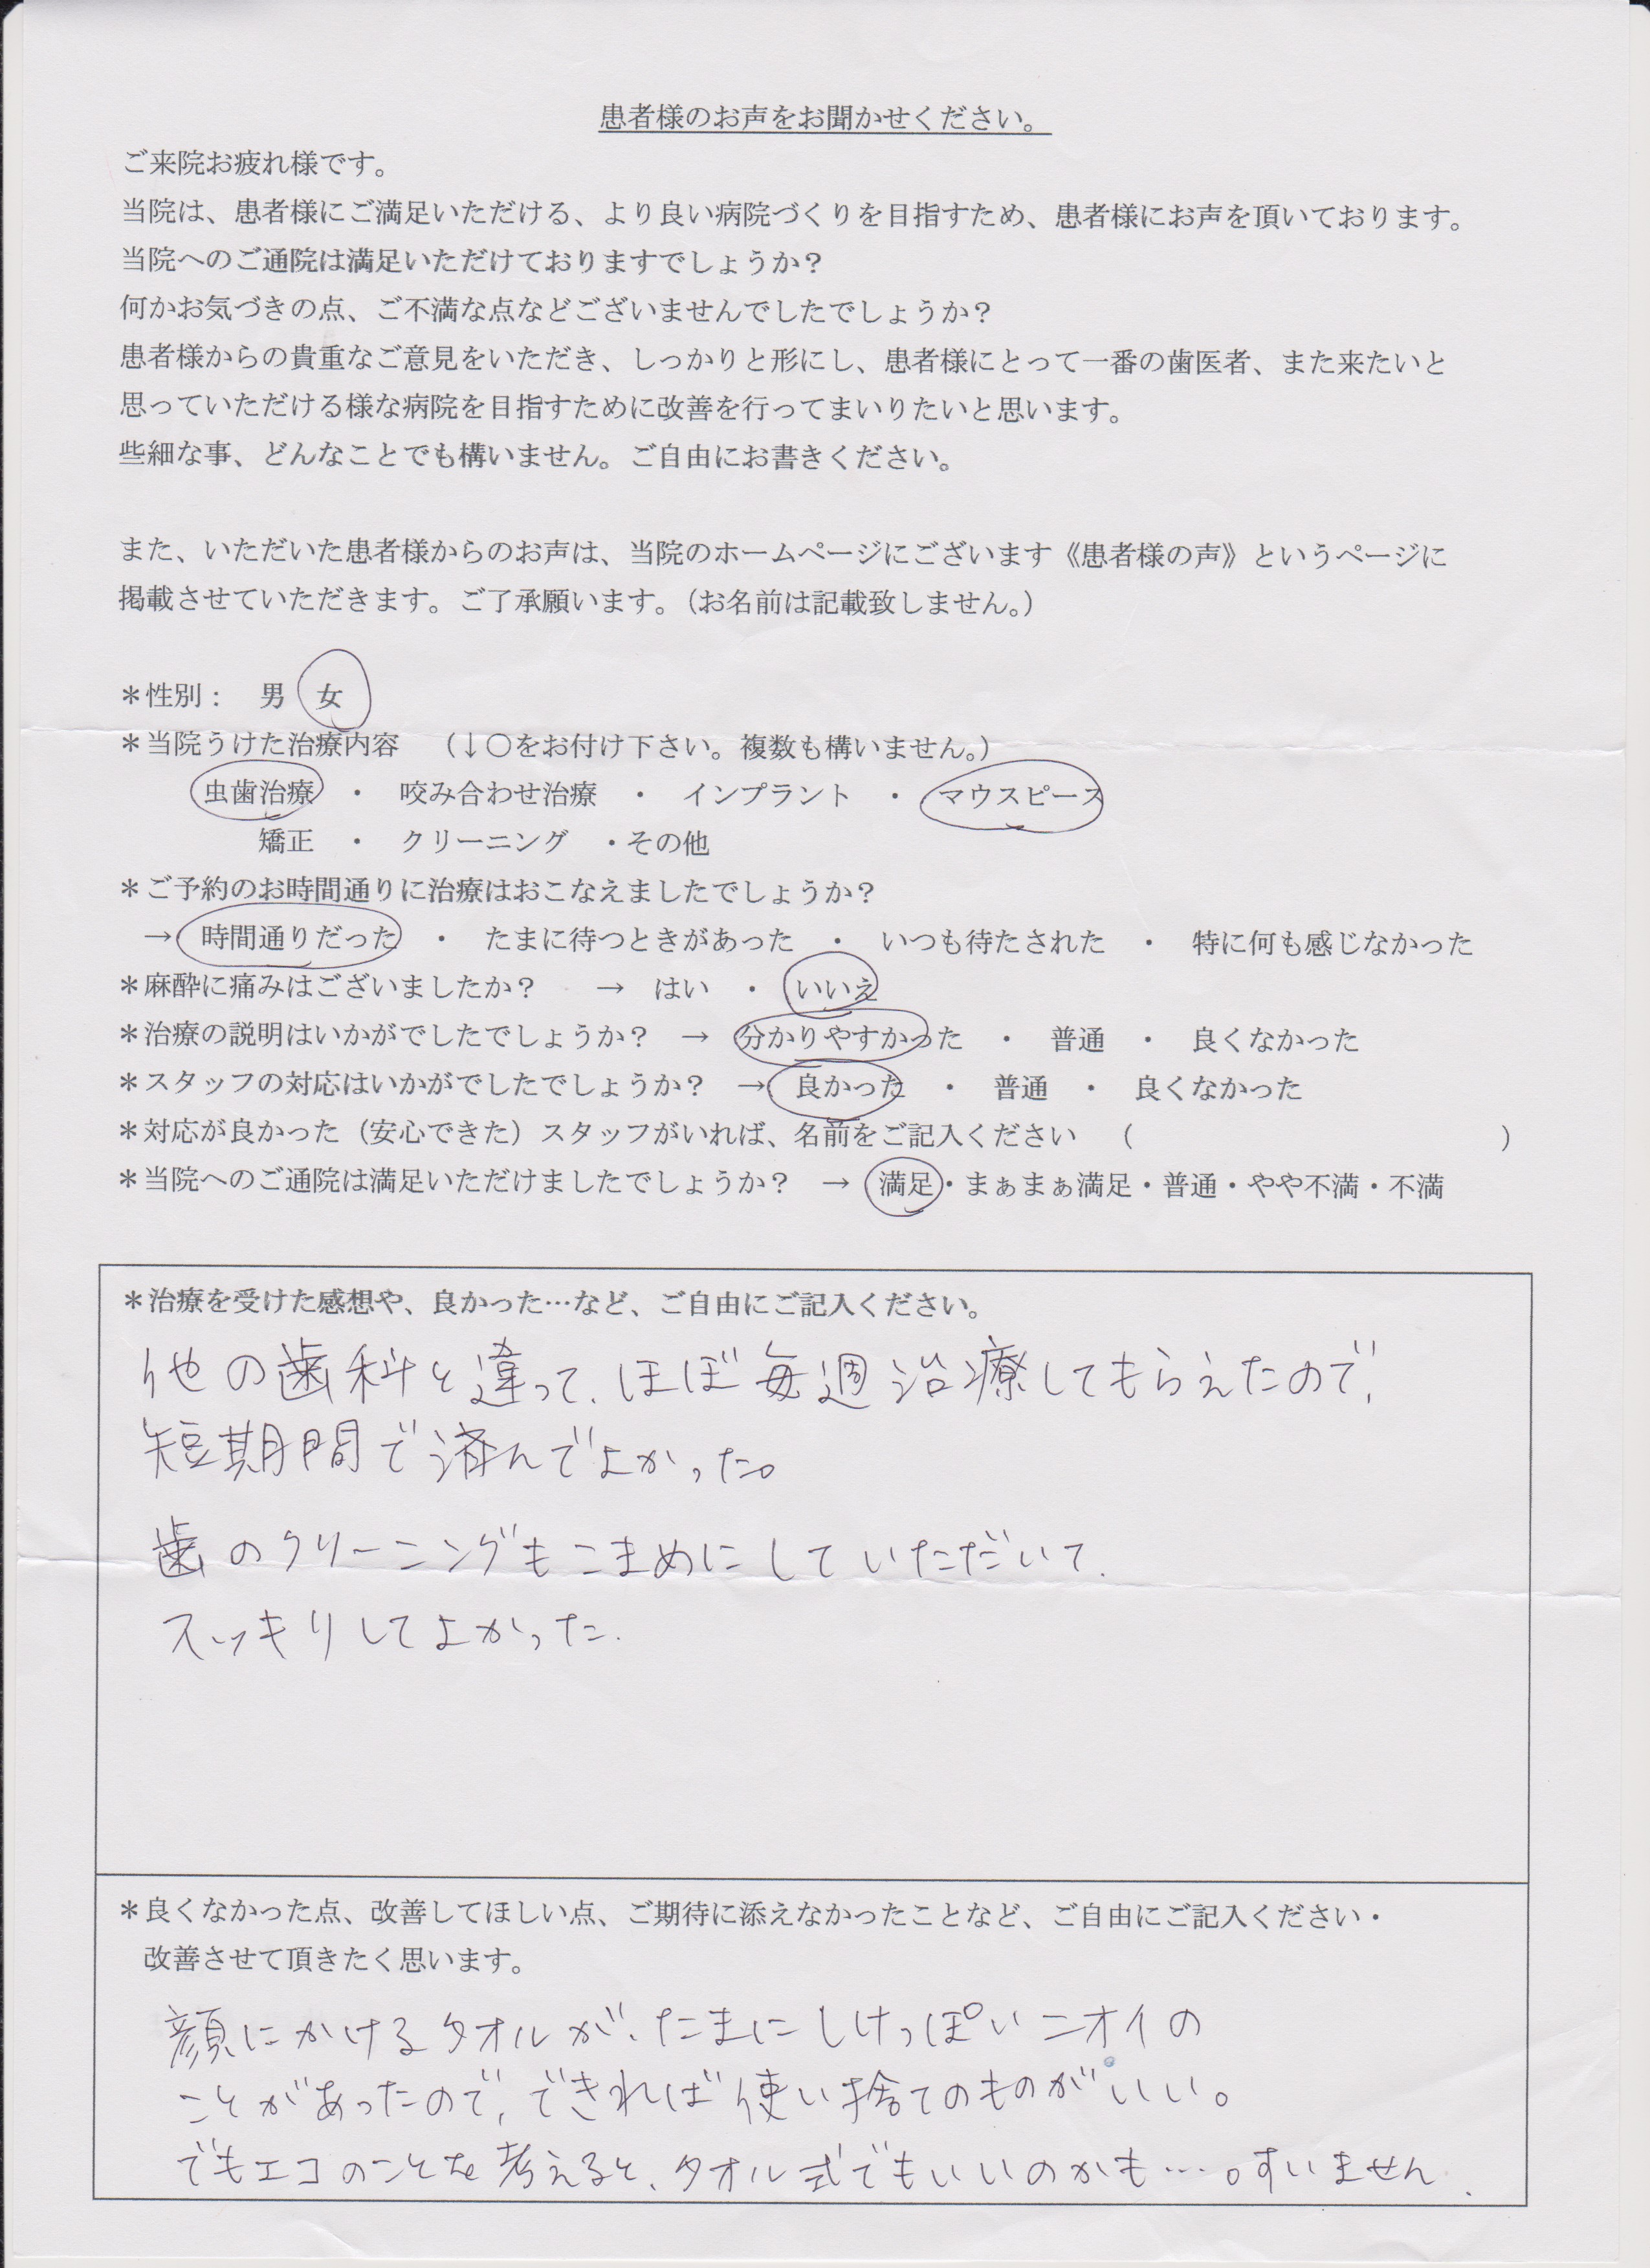 患者様のお声をお聞かせください。
ご来院お疲れ様です。
当院は、患者様にご満足いただける、より良い病院づくりを目指すため、患者様にお声を頂いております。
当院へのご通院は満足いただけておりますでしょうか？
何かお気づきの点、ご不満な点などございませんでしたでしょうか？
患者様からの貴重なご意見をいただき、しっかりと形にし、患者様にとって一番の歯医者、また来たいと
思っていただける様な病院を目指すために改善を行ってまいりたいと思います。
些細な事、どんなことでも構いません。ご自由にお書きください。
また、いただいた患者様からのお声は、当院のホームページにございます《患者様の声》というページに
掲載させていただきます。ご了承願います。（お名前は記載致しません。）
＊性別： 男 女
＊当院うけた治療内容 （↓〇をお付け下さい。複数も構いません。）
虫歯治療 ・ 咬み合わせ治療 ・ インプラント ・ マウスピース
矯正 ・ クリーニング ・その他
＊ご予約のお時間通りに治療はおこなえましたでしょうか？
→ 時間通りだった ・ たまに待つときがあった ・ いつも待たされた ・ 特に何も感じなかった
＊麻酔に痛みはございましたか？ → はい ・ いいえ
＊治療の説明はいかがでしたでしょうか？ → 分かりやすかった ・ 普通 ・ 良くなかった
＊スタッフの対応はいかがでしたでしょうか？ → 良かった ・ 普通 ・ 良くなかった
＊対応が良かった（安心できた）スタッフがいれば、名前をご記入ください （ ）
＊当院へのご通院は満足いただけましたでしょうか？ → 満足・まぁまぁ満足・普通・やや不満・不満
＊治療を受けた感想や、良かった…など、ご自由にご記入ください。
他の歯科と違って、ほぼ毎週治療してもらえたので、
短期間で済んでよかった。
歯のクリーニングもこまめにしていただいて、
スッキリしてよかった.
＊良くなかった点、改善してほしい点、ご期待に添えなかったことなど、ご自由にご記入ください・
改善させて頂きたく思います。
顔にかけるタオルが、たまにしけっぽいニオイの
ことがあったので、できれば使い捨てのものがいい。
でもエコのことを考えると、タオル式でもいいのかも…。すいません.